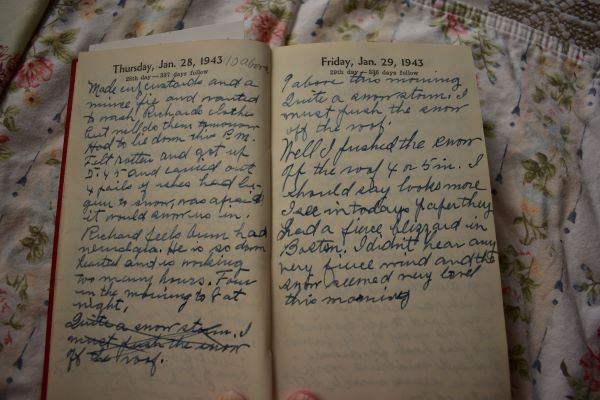 Thursday, Jan. 28, 1943 10 above
28th day—337 days follow
Made up custards and a
mince pie and wanted
to wash Richards clothes
but will do them tomorrow
Had to lie down this P.M.
Felt rotten and got up
5-45 and carried out
4 pails of ashes had be-
gun to snow, was afraid
it would snow us in.
Richard feels bum had
neuralgia. He is so down
hearted and is working
too many hours. Four
in the morning to 8 at
night.
Quite a snow storm. I
must push the snow
off the roof.
Friday, Jan. 29, 1943
29th day—336 days follow
9 above this morning
Quite a snow storm. I
must push the snow
off the roof.
Well I pushed the snow
off the roof 4 or 5 in. I
should say looks more
I see in todays paper they
had a fierce blizzard in
Boston. I didn't hear any
very fierce wind and the
snow seemed very level
this morning